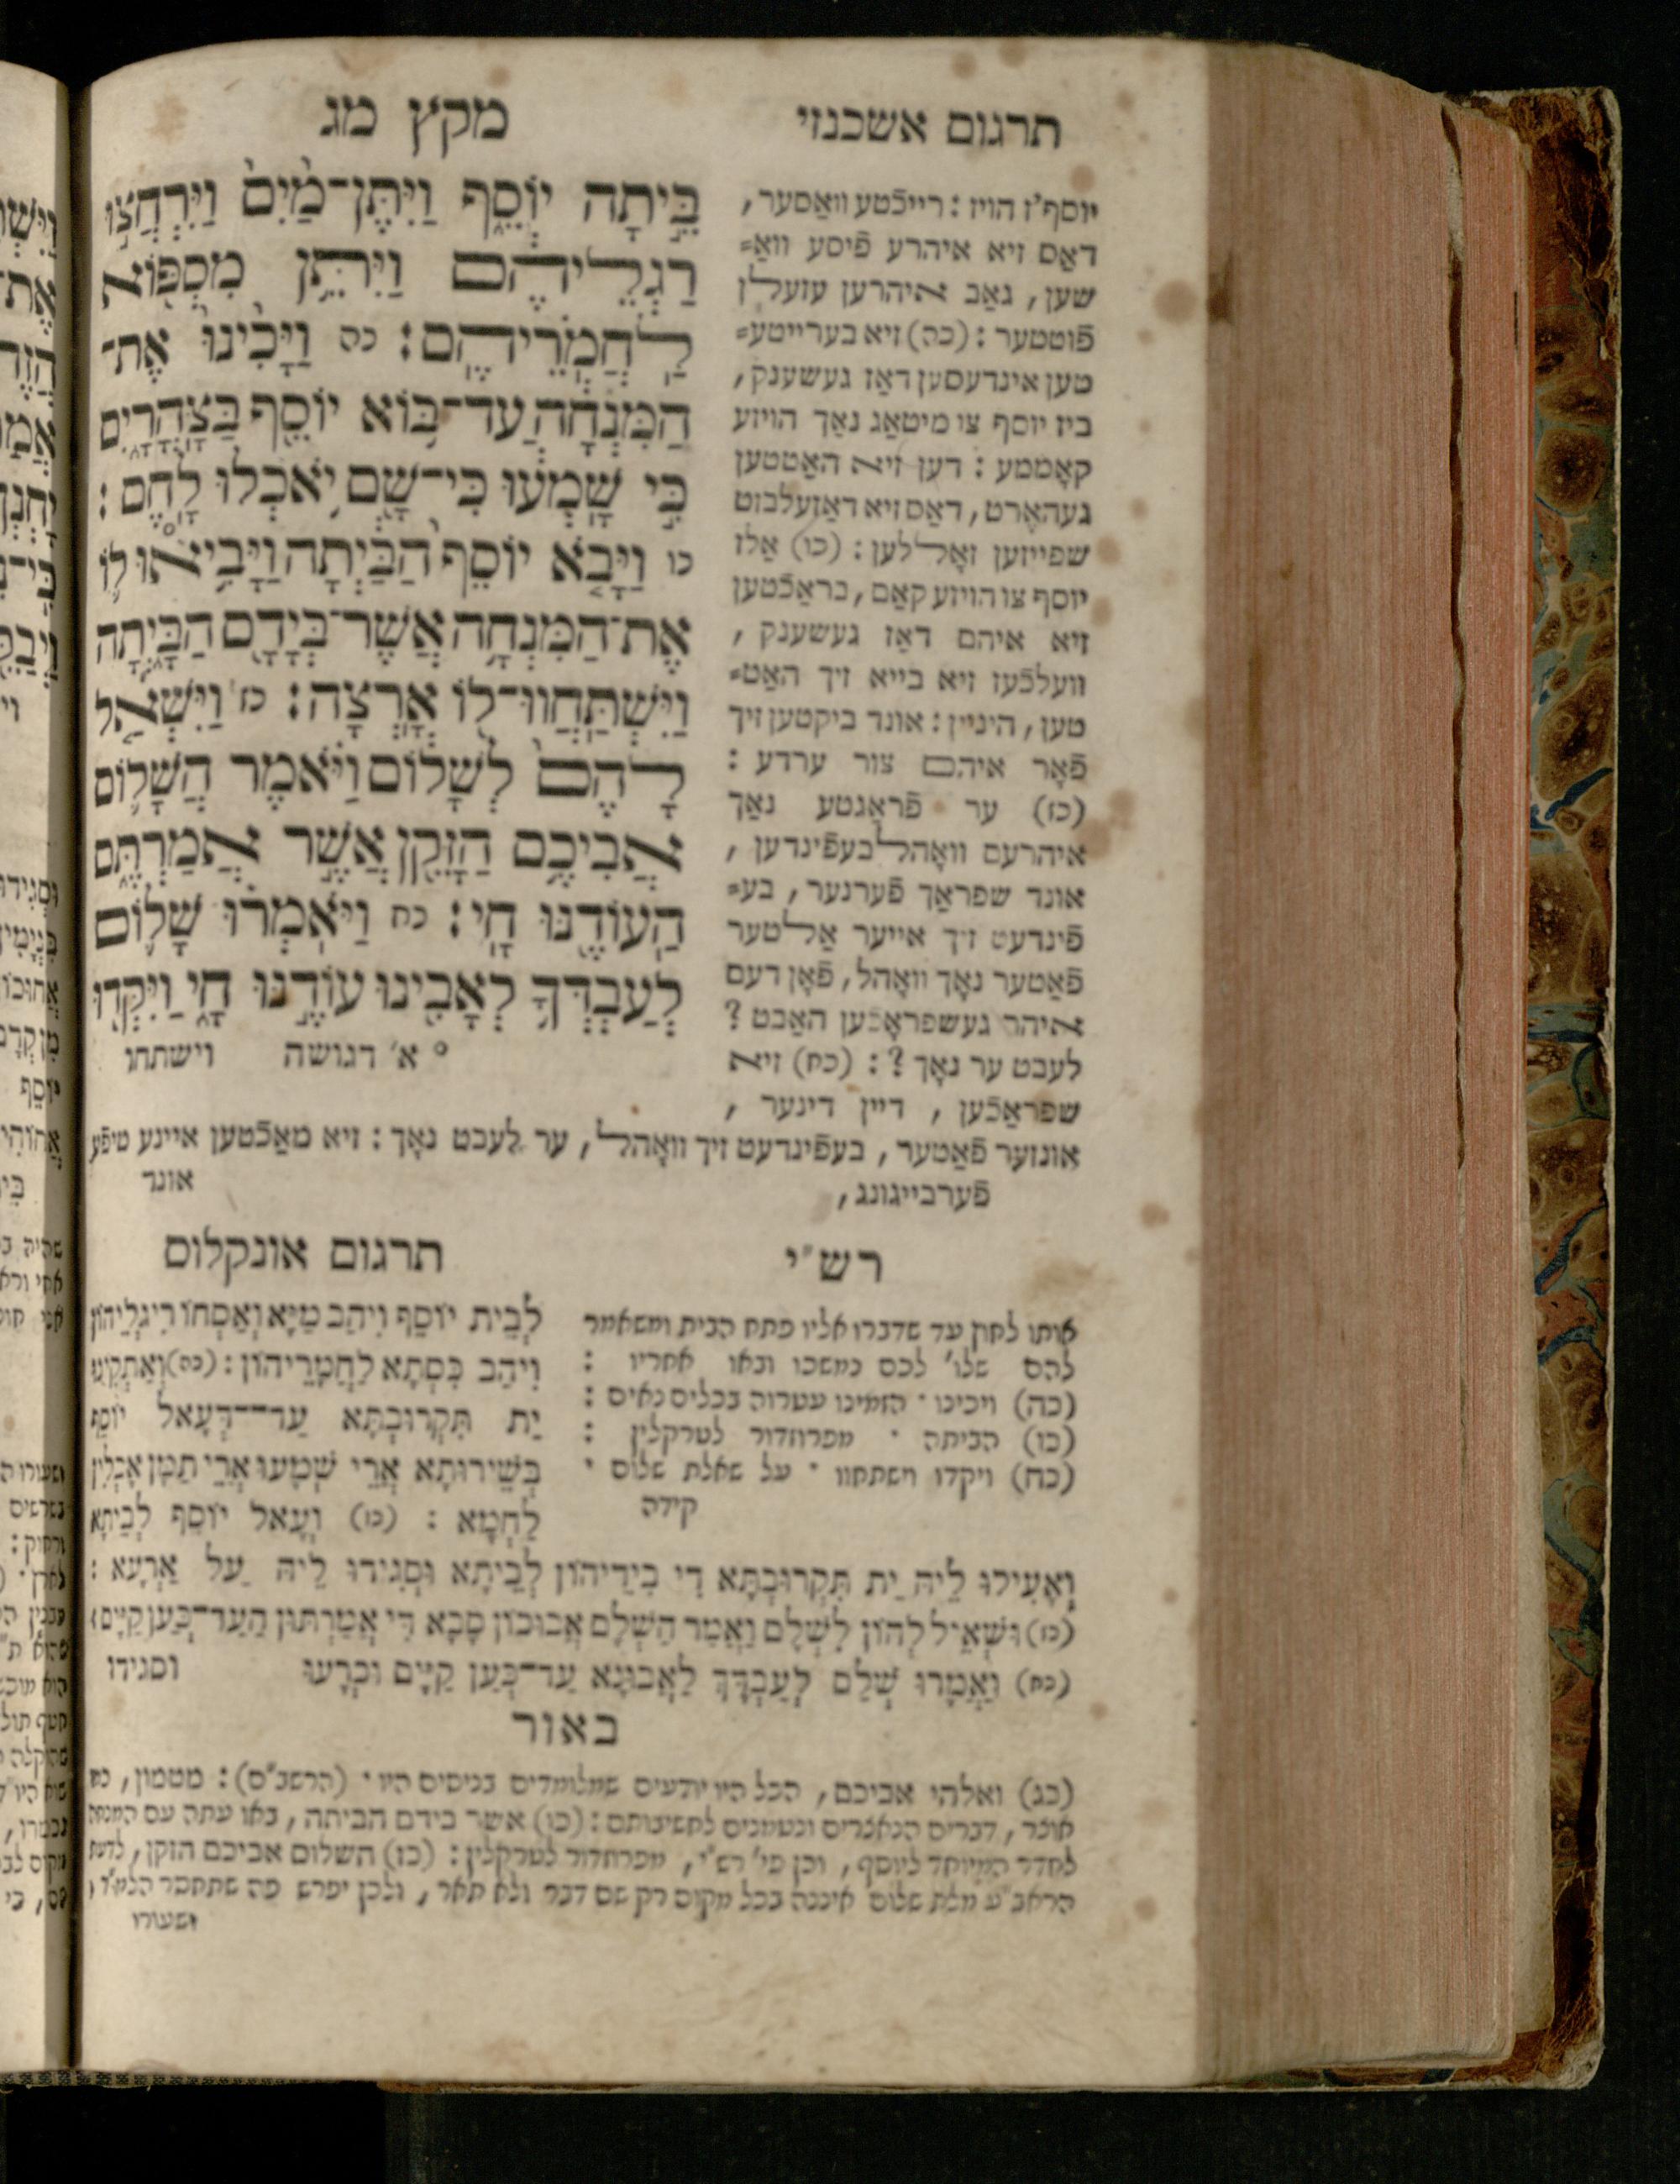 תרגום אשכנזי
מקץ מג
בֵּ֣יתָה יוֹסֵ֑ף וַיִּתֶּן־מַ֙יִם֙ וַיִּרְחֲצ֣וּ
רַגְלֵיהֶ֔ם וַיִּתֵּ֥ן מִסְפּ֖וֹא
לַֽחֲמֹרֵיהֶֽם: כה וַיָּכִ֙ינוּ֙ אֶת־
הַמִּנְחָ֔ה עַד־בּ֥וֹא יוֹסֵ֖ף בַּֽצָּהֳרָ֑יִם
כִּ֣י שָֽׁמְע֔וּ כִּי־שָׁ֖ם יֹ֥אכְלוּ לָֽחֶם:
כו וַיָּבֹ֤א יוֹסֵף֙ הַבַּ֔יְתָה וַיָּבִ֥יאּוּ ל֛וֹ
אֶת־הַמִּנְחָ֥ה אֲשֶׁר־בְּיָדָ֖ם הַבָּ֑יְתָה
וַיִּשְׁתַּֽחֲווּ־ל֖וֹ אָֽרְצָה: כז וַיִּשְׁאַ֤ל
לָהֶם֙ לְשָׁל֔וֹם וַיֹּ֗אמֶר הֲשָׁל֛וֹם
אֲבִיכֶ֥ם הַזָּקֵ֖ן אֲשֶׁ֣ר אֲמַרְתֶּ֑ם
הַֽעוֹדֶ֖נּוּ חָֽי: כח וַיֹּֽאמְר֗וּ שָׁל֛וֹם
לְעַבְדְּךָ֥ לְאָבִ֖ינוּ עוֹדֶ֣נּוּ חָ֑י וַֽיִּקְּד֖וּ
° א׳ דגושה וישתחו
יוסף'ז הויז: רייכֿטע וואַסער,
דאַס זיא איהרע פֿיסע וואַ=
שען, גאַב איהרען עזעלן
פֿוטטער: (כה) זיא בערייטע=
טען אינדעסען דאַז געשענק,
ביז יוסף צו מיטאַג נאַך הויזע
קאָממע: דען זיא האַטטען
געהאָרט, דאַס זיא דאַזעלבזט
שפייזען זאָללען: (כו) אַלז
יוסף צו הויזע קאַם, בראַכֿטען
זיא איהם דאַז געשענק,
וועלכֿעז זיא בייא זיך האַט=
טען, היניין: אונד ביקטען זיך
פֿאָר איהם צור ערדע:
(כז) ער פֿראַגטע נאַך
איהרעם וואָהלבעפֿינדען,
אונד שפראַך פֿערנער, בע=
פֿינדעט זיך אייער אַלטער
פֿאַטער נאָך וואָהל, פֿאָן דעם
איהר געשפראָכֿען האַבט?
לעבט ער נאָך?: (כח) זיא
שפראַכֿען, דיין דינער,
אונזער פֿאַטער, בעפֿינדעט זיך וואָהל, ער לעבט נאָך: זיא מאַכֿטען איינע טיפֿע
פֿערבייגונג, אונד
רש"י
אותו לחוץ עד שדברו אליו פתח הבית ומשאמר
להם שלו׳ לכם נמשכו ובאו אחריו:
(כה) ויכינו · הזמינו עטרוה בכלים נאים:
(כו) הביתה · מפרוזדור לטרקלין:
(כח) ויקדו וישתחוו · על שאלת שלום ·
קידה
תרגום אונקלוס
לְבֵית יוֹסֵף וִיהַב מַיָּא וְאַסְחוֹ רִיגְלֵיהוֹן
וִיהַב כִּסְתָא לַחֲמָרֵיהוֹן: (כה) וְאַתְקִינוּ
יַת תִּקְרוּבְתָּא עַד־דְּעָאל יוֹסֵף
בְּשֵׁירוּתָא אֲרֵי שְׁמָעוּ אֲרֵי תַמָּן אָכְלִין
לַחְמָא: (כו) וְעָאל יוֹסֵף לְבֵיתָא
וְאָעִילוּ לֵיהּ יַת תִּקְרוּבְתָּא דִי בִידֵיהוֹן לְבֵיתָא וּסְגִידוּ לֵיהּ עַל אַרְעָא:
(כז) וּשְׁאֵיל לְהוֹן לִשְׁלָם וַאֲמַר הַשְׁלָם אֲבוּכוֹן סָבָא דִּי אֲמַרְתּוּן הַעַד־כְּעַן קַיָּים:
(כח) וַאֲמָרוּ שְׁלָם לְעַבְדָּךְ לַאֲבוּנָא עַד־כְּעַן קַיָּים וּכְרָעוּ וסגידו
באור
(כג) ואלהי אביכם, הכל היו יודעים שמלומדים בניסים היו · (הרשב"ם): מטמון, כמו
אוצר, דברים הנאצרים ונטמנים לחשיבותם: (כו) אשר בידם הביתה, באו עתה עם המנחה
לחדר המיוחד ליוסף, וכן פי׳ רש"י, מפרוזדור לטרקלין: (כז) השלום אביכם הזקן, לדעת
הראב"ע מלת שלום איננה בכל מקום רק שם דבר ולא תאר, ולכן יפרש פה שתחסר המלה,
ושעורו